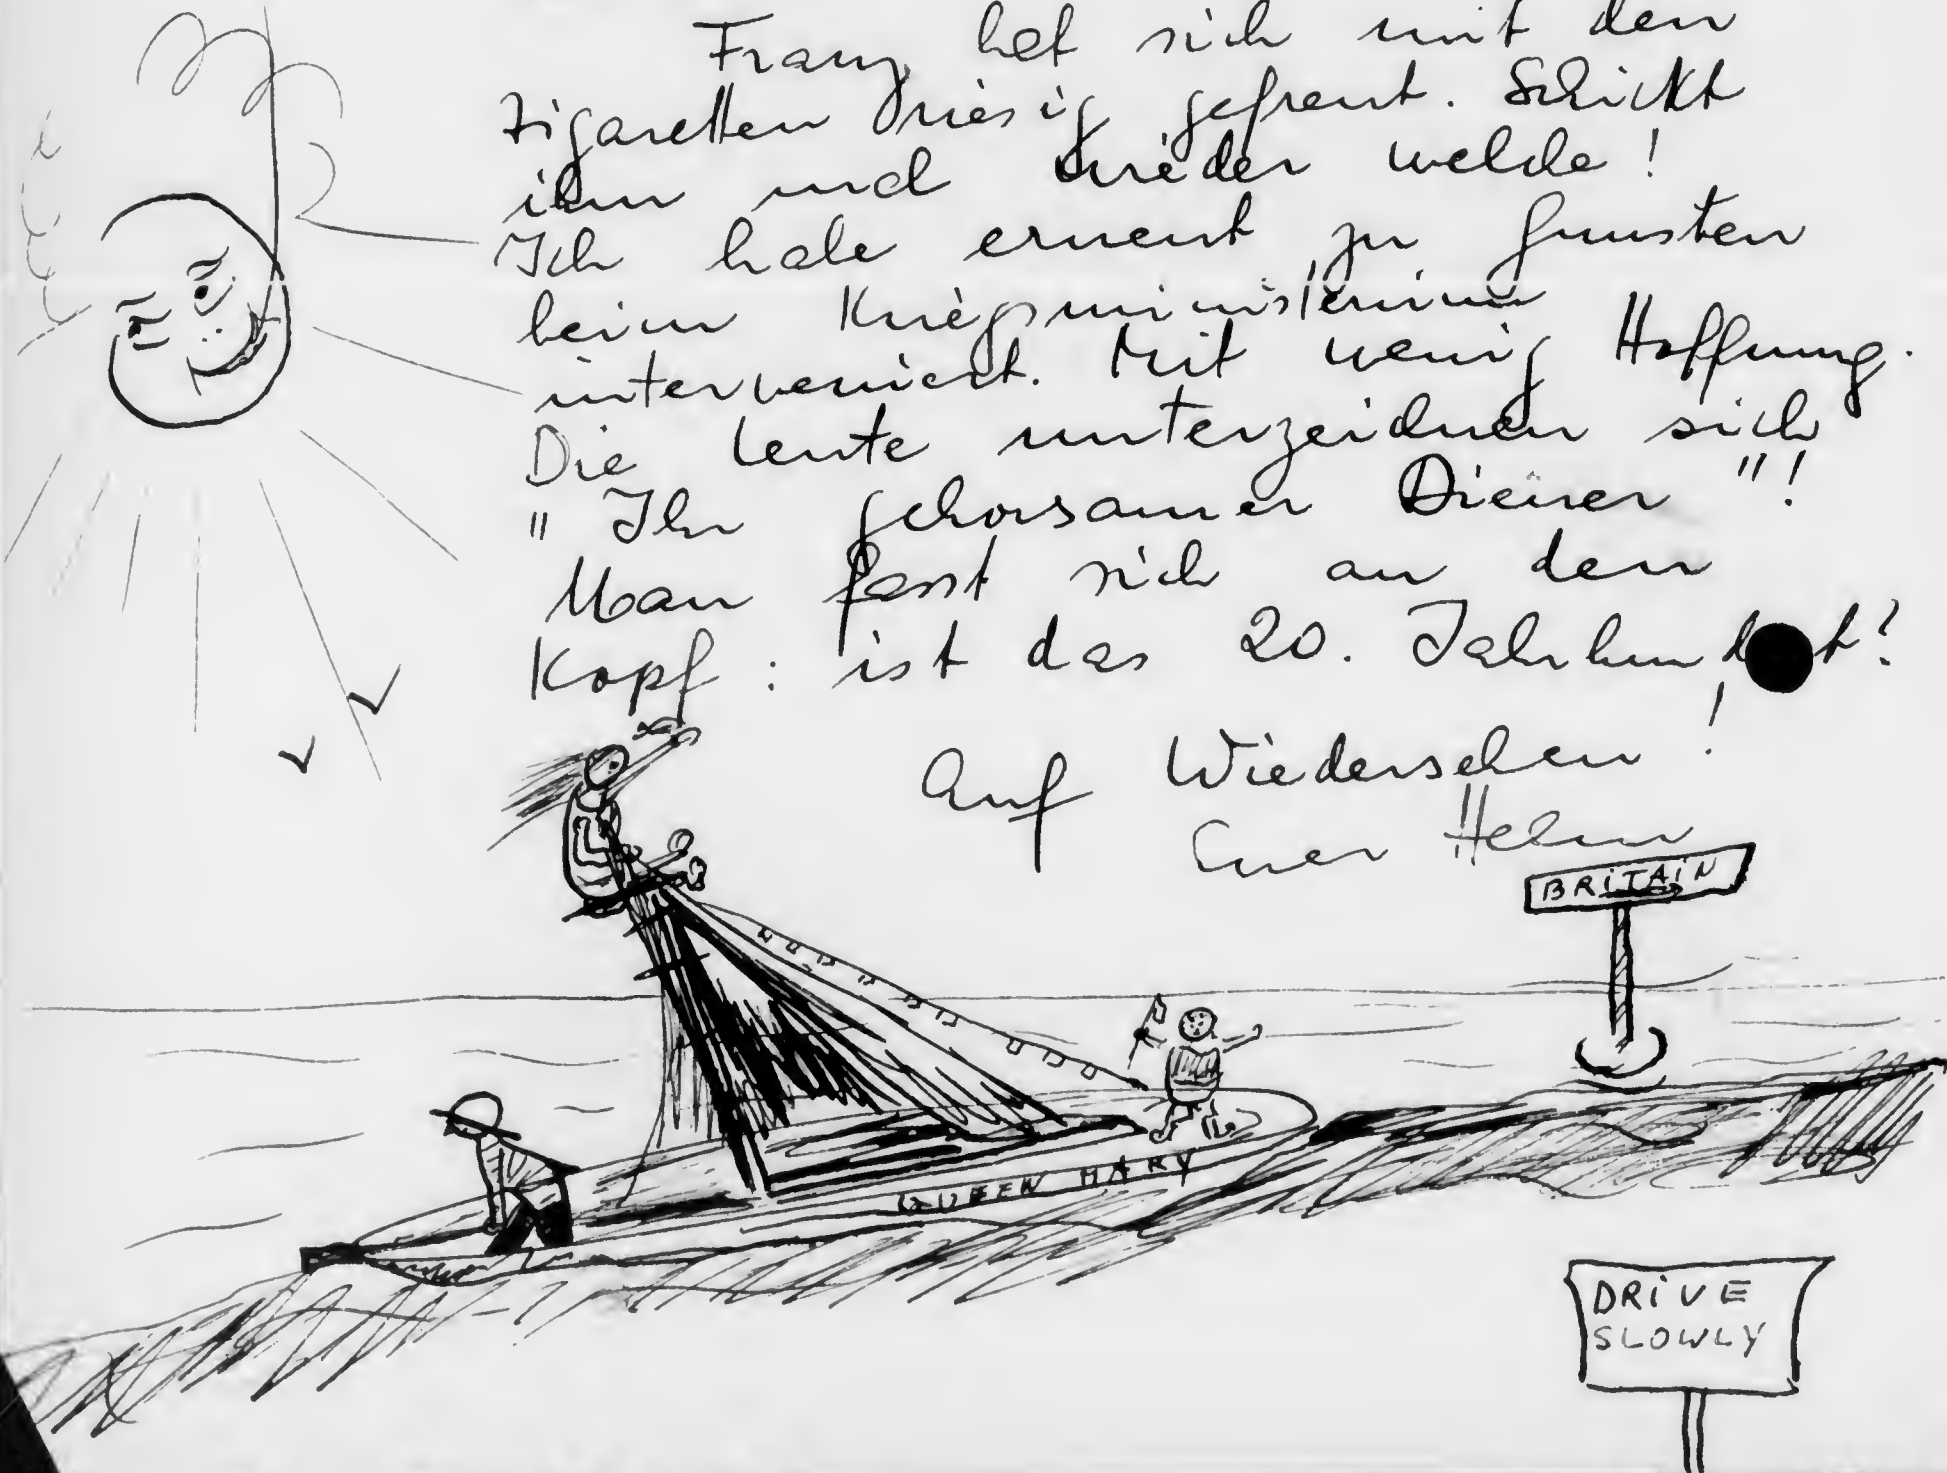 Franz hat sich mit den
Zigaretten riesig gefreut. Schickt
ihm und wieder welche!
Ich habe erneut zu Gunsten
beim Kriegsministerium
interveniert. Mit wenig Hoffnung.
Die Leute unterzeichnen sich
"Ihr gehorsamer Diener"!
Man fasst sich an den
Kopf: ist das 20. Jahrhundert?!
Auf Wiedersehen!
Euer
BRITAIN
QUEEN MARY
DRIVE
SLOWLY